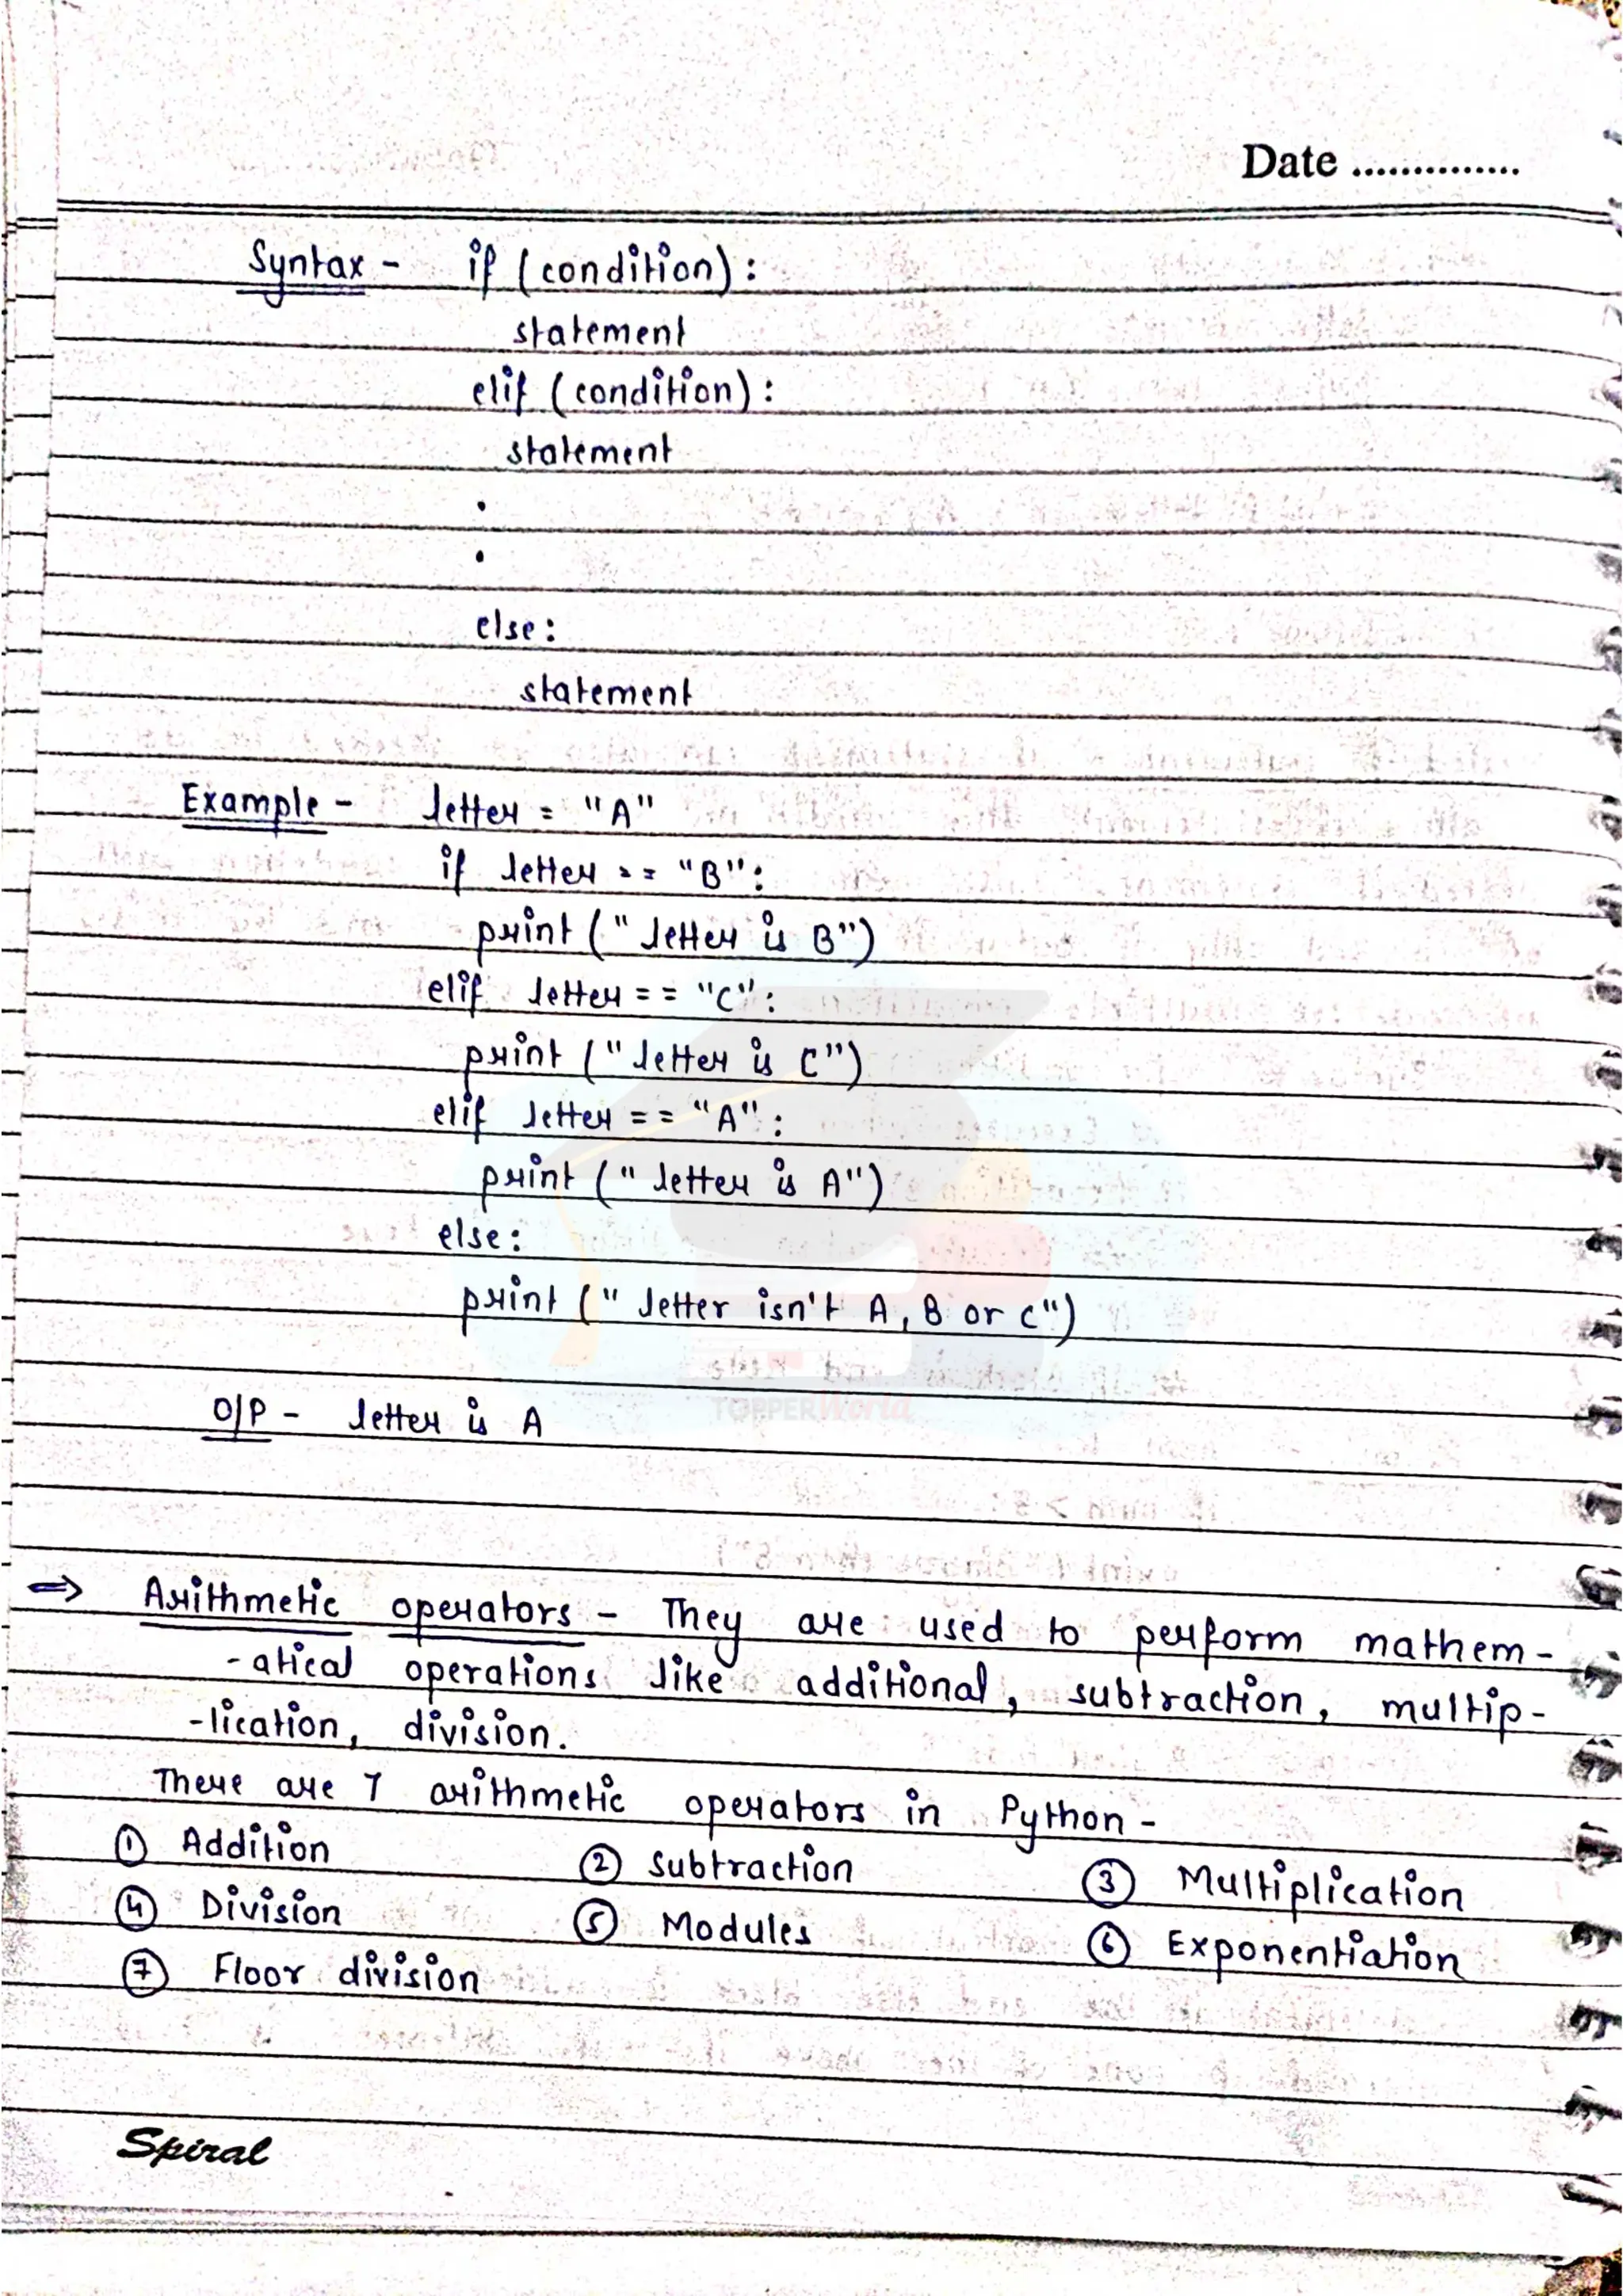 Date ...............
Syntax - if (condition) :
statement
elif (condition) :
statement
.
.
else :
statement
Example - letter = "A"
if letter == "B" :
print (" letter is B")
elif letter == "C" :
print (" letter is C")
elif letter == "A" :
print (" letter is A")
else :
print (" letter isn't A, B or C")
TOPPERWorld
O/P - letter is A
⇒ Arithmetic operators - They are used to perform mathem-
-atical operations like additional, subtraction, multip-
-lication, division.
There are 7 arithmetic operators in Python -
① Addition ② Subtraction ③ Multiplication
④ Division ⑤ Modules ⑥ Exponentiation
⑦ Floor division
Spiral